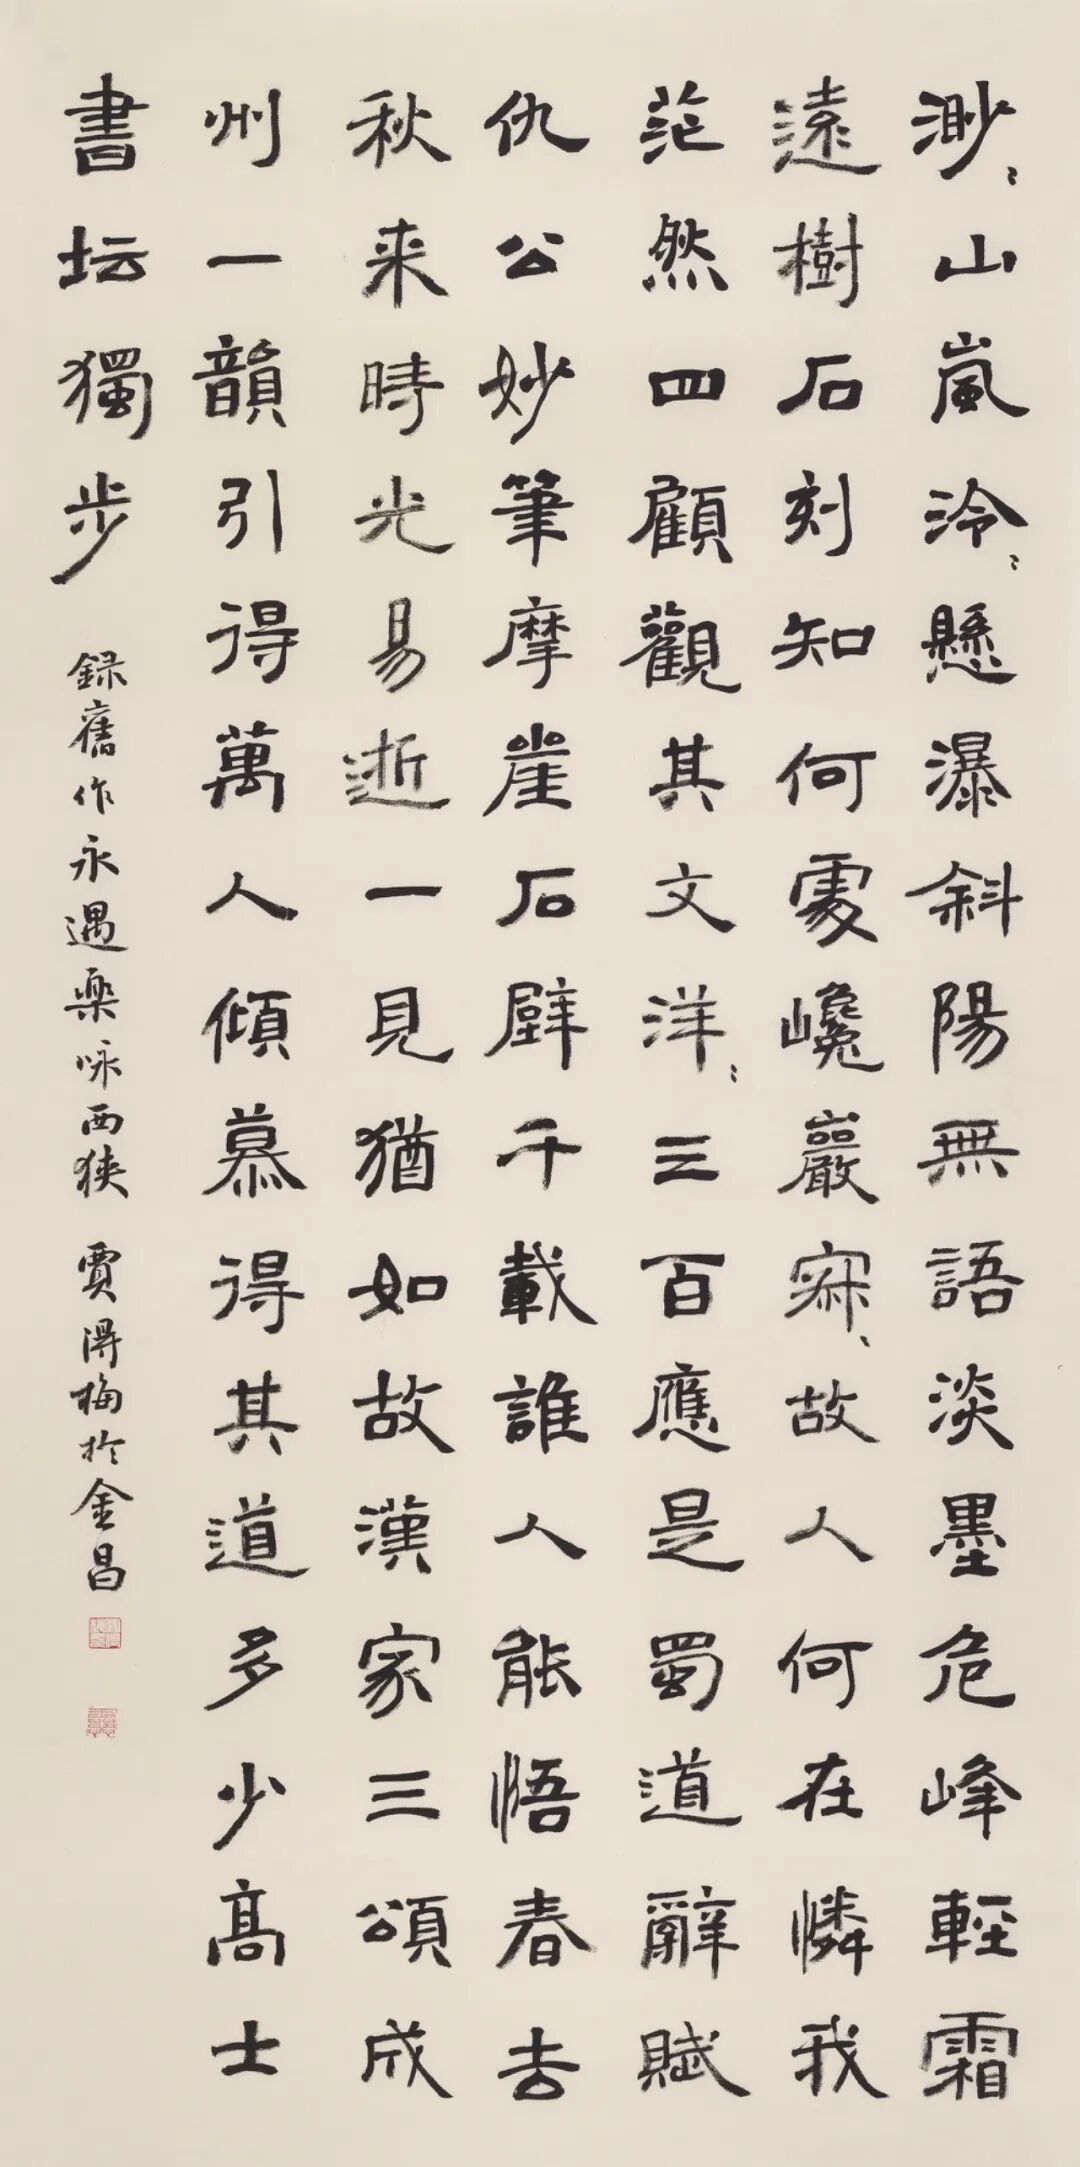 渺〻山嵐泠〻懸瀑斜陽無語淡墨危峰輕霜
遠樹石刻知何處巉巖寂〻故人何在憐我
茫然四顧觀其文洋〻三百應是蜀道辭賦
仇公妙筆摩崖石壁千載誰人能悟春去
秋来時光易逝一見猶如故漢家三頌成
州一韻引得萬人傾慕得其道多少高士
書坛獨步
録舊作永遇樂咏西狹 賈得梅於金昌